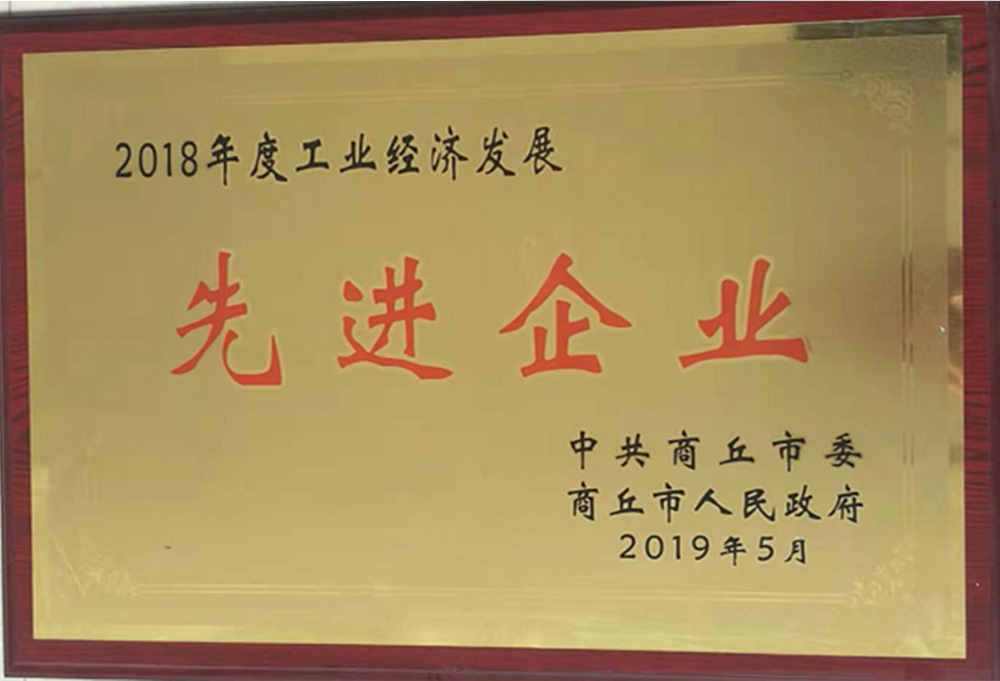 2018年度工业经济发展
先进企业
中共商丘市委
商丘市人民政府
2019年5月